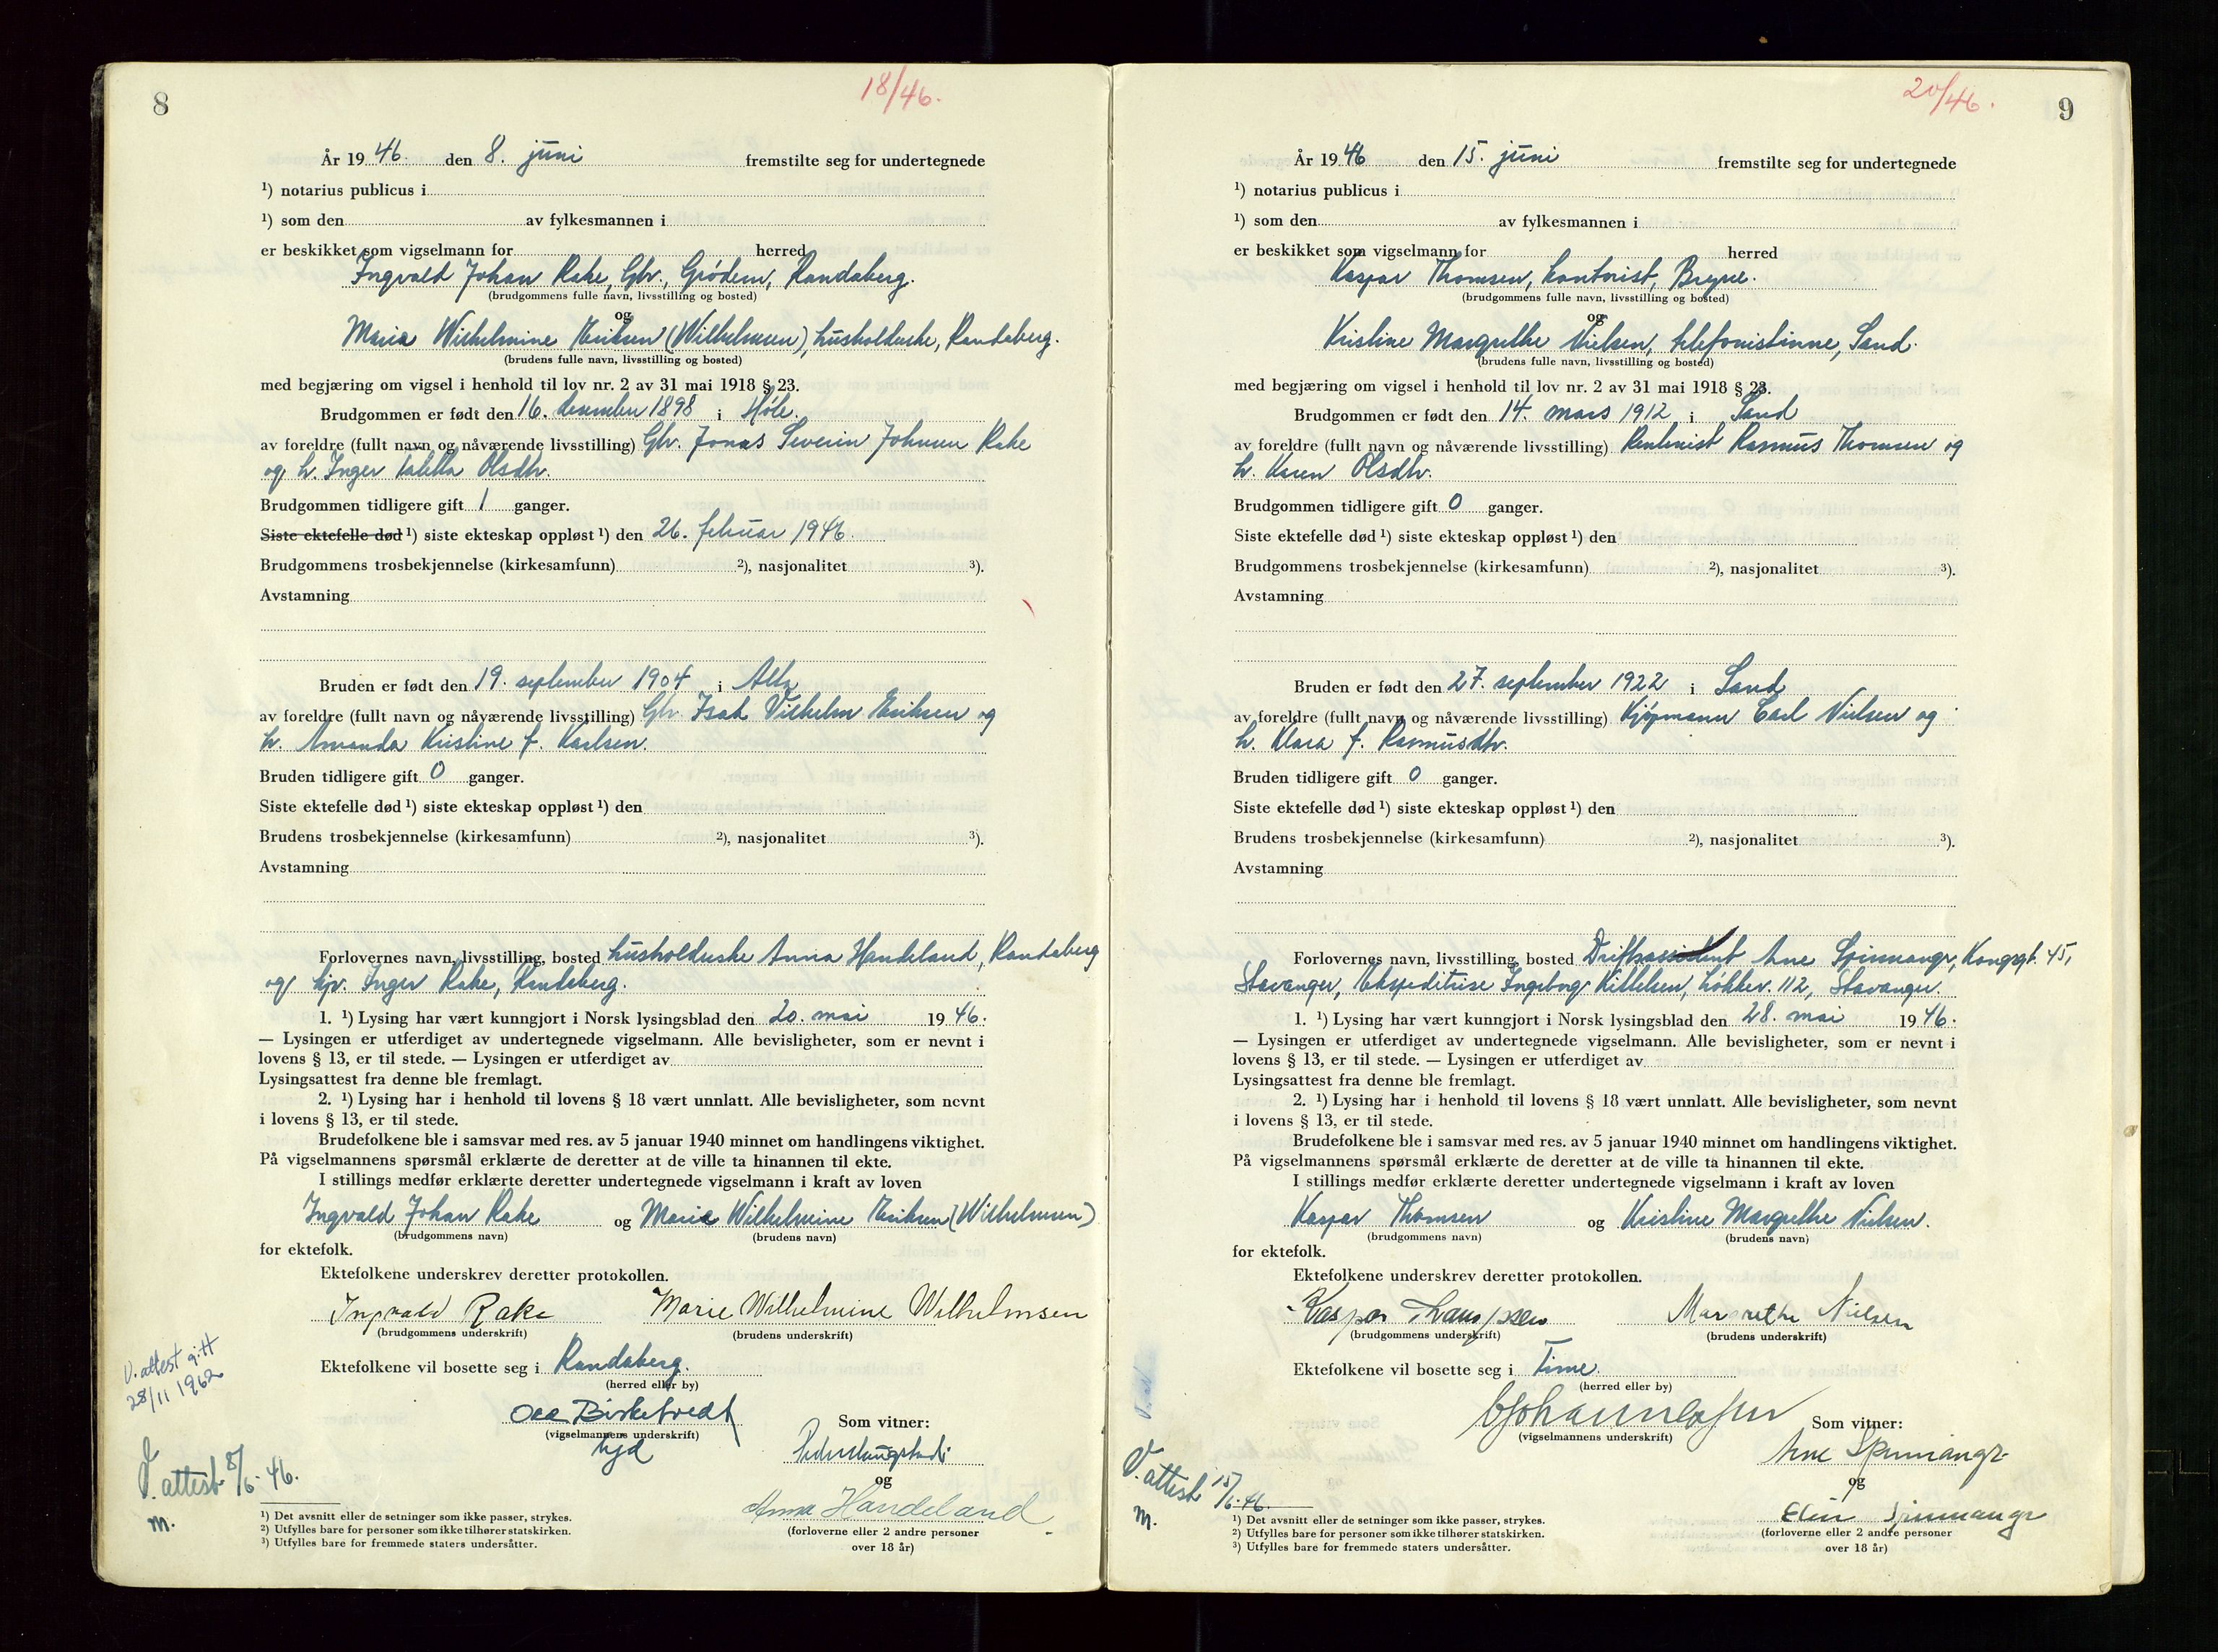 8
18/46.
År 1946. den 8. juni fremstilte seg for undertegnede
¹) notarius publicus i
¹) som den av fylkesmannen i
er beskikket som vigselmann for herred
Ingvald Johan Rake, Gbr., Grødem, Randaberg.
(brudgommens fulle navn, livsstilling og bosted)
og
Marie Wilhelmine Eriksen (Wilhelmsen), husholderske, Randaberg.
(brudens fulle navn, livsstilling og bosted)
med begjæring om vigsel i henhold til lov nr. 2 av 31 mai 1918 § 23.
Brudgommen er født den 16. desember 1898 i Høle.
av foreldre (fullt navn og nåværende livsstilling) Gbr. Jonas Severin Johnsen Rake
og h. Inger Taletta Olsdtr.
Brudgommen tidligere gift 1 ganger.
Siste ektefelle død ¹) siste ekteskap oppløst ¹) den 26. februar 1946.
Brudgommens trosbekjennelse (kirkesamfunn) ²), nasjonalitet ³).
Avstamning
Bruden er født den 19. september 1904 i Alta
av foreldre (fullt navn og nåværende livsstilling) Gbr. Isak Vilhelm Eriksen og
h. Amanda Kristine f. Karlsen.
Bruden tidligere gift 0 ganger.
Siste ektefelle død ¹) siste ekteskap oppløst ¹) den
Brudens trosbekjennelse (kirkesamfunn) ²), nasjonalitet ³).
Avstamning
Forlovernes navn, livsstilling, bosted husholderske Anna Handeland, Randaberg
og hjv. Inger Rake, Randaberg.
1. ¹) Lysing har vært kunngjort i Norsk lysingsblad den 20. mai 1946.
— Lysingen er utferdiget av undertegnede vigselmann. Alle bevisligheter, som er nevnt i
lovens § 13, er til stede. — Lysingen er utferdiget av
Lysingsattest fra denne ble fremlagt.
2. ¹) Lysing har i henhold til lovens § 18 vært unnlatt. Alle bevisligheter, som nevnt
i lovens § 13, er til stede.
Brudefolkene ble i samsvar med res. av 5 januar 1940 minnet om handlingens viktighet.
På vigselmannens spørsmål erklærte de deretter at de ville ta hinannen til ekte.
I stillings medfør erklærte deretter undertegnede vigselmann i kraft av loven
Ingvald Johan Rake og Marie Wilhelmine Eriksen (Wilhelmsen)
(brudgommens navn) (brudens navn)
for ektefolk.
Ektefolkene underskrev deretter protokollen.
Ingvald Rake Marie Wilhelmine Wilhelmsen
(brudgommens underskrift) (brudens underskrift)
Ektefolkene vil bosette seg i Randaberg.
(herred eller by)
V. attest gitt
28/11 1962
(vigselmannens underskrift)
Som vitner:
og
V. attest 8/6-46.
m.
Anna Handeland
(forloverne eller 2 andre personer
over 18 år)
¹) Det avsnitt eller de setninger som ikke passer, strykes.
²) Utfylles bare for personer som ikke tilhører statskirken.
³) Utfylles bare for fremmede staters undersåtter.
20/46.
9
År 1946 den 15. juni fremstilte seg for undertegnede
¹) notarius publicus i
¹) som den av fylkesmannen i
er beskikket som vigselmann for herred
Kaspar Thomsen, kontorist, Bryne.
(brudgommens fulle navn, livsstilling og bosted)
og
Kristine Margrethe Nielsen, telefonistinne, Sand.
(brudens fulle navn, livsstilling og bosted)
med begjæring om vigsel i henhold til lov nr. 2 av 31 mai 1918 § 23.
Brudgommen er født den 14. mars 1912 i Sand
av foreldre (fullt navn og nåværende livsstilling) Rentenist Rasmus Thomsen og
h. Karen Olsdtr.
Brudgommen tidligere gift 0 ganger.
Siste ektefelle død ¹) siste ekteskap oppløst ¹) den
Brudgommens trosbekjennelse (kirkesamfunn) ²), nasjonalitet ³).
Avstamning
Bruden er født den 27. september 1922 i Sand
av foreldre (fullt navn og nåværende livsstilling) Kjøpmann Carl Nielsen og
h. Klara f. Rasmusdtr.
Bruden tidligere gift 0 ganger.
Siste ektefelle død ¹) siste ekteskap oppløst ¹) den
Brudens trosbekjennelse (kirkesamfunn) ²), nasjonalitet ³).
Avstamning
Forlovernes navn, livsstilling, bosted Driftsassistent Arne Spinnangr, Kongsgt. 45,
Stavanger, Ekspeditrise Ingeborg Kittelsen, Løkkev. 112, Stavanger.
1. ¹) Lysing har vært kunngjort i Norsk lysingsblad den 28. mai 1946.
— Lysingen er utferdiget av undertegnede vigselmann. Alle bevisligheter, som er nevnt i
lovens § 13, er til stede. — Lysingen er utferdiget av
Lysingsattest fra denne ble fremlagt.
2. ¹) Lysing har i henhold til lovens § 18 vært unnlatt. Alle bevisligheter, som nevnt
i lovens § 13, er til stede.
Brudefolkene ble i samsvar med res. av 5 januar 1940 minnet om handlingens viktighet.
På vigselmannens spørsmål erklærte de deretter at de ville ta hinannen til ekte.
I stillings medfør erklærte deretter undertegnede vigselmann i kraft av loven
Kaspar Thomsen og Kristine Margrethe Nielsen.
(brudgommens navn) (brudens navn)
for ektefolk.
Ektefolkene underskrev deretter protokollen.
Kaspar Thomsen Margrethe Nielsen
(brudgommens underskrift) (brudens underskrift)
Ektefolkene vil bosette seg i Time.
(herred eller by)
(vigselmannens underskrift)
Som vitner:
Arne Spinnangr
og
V. attest 15/6-46.
m.
Elin Spinnangr
(forloverne eller 2 andre personer
over 18 år)
¹) Det avsnitt eller de setninger som ikke passer, strykes.
²) Utfylles bare for personer som ikke tilhører statskirken.
³) Utfylles bare for fremmede staters undersåtter.